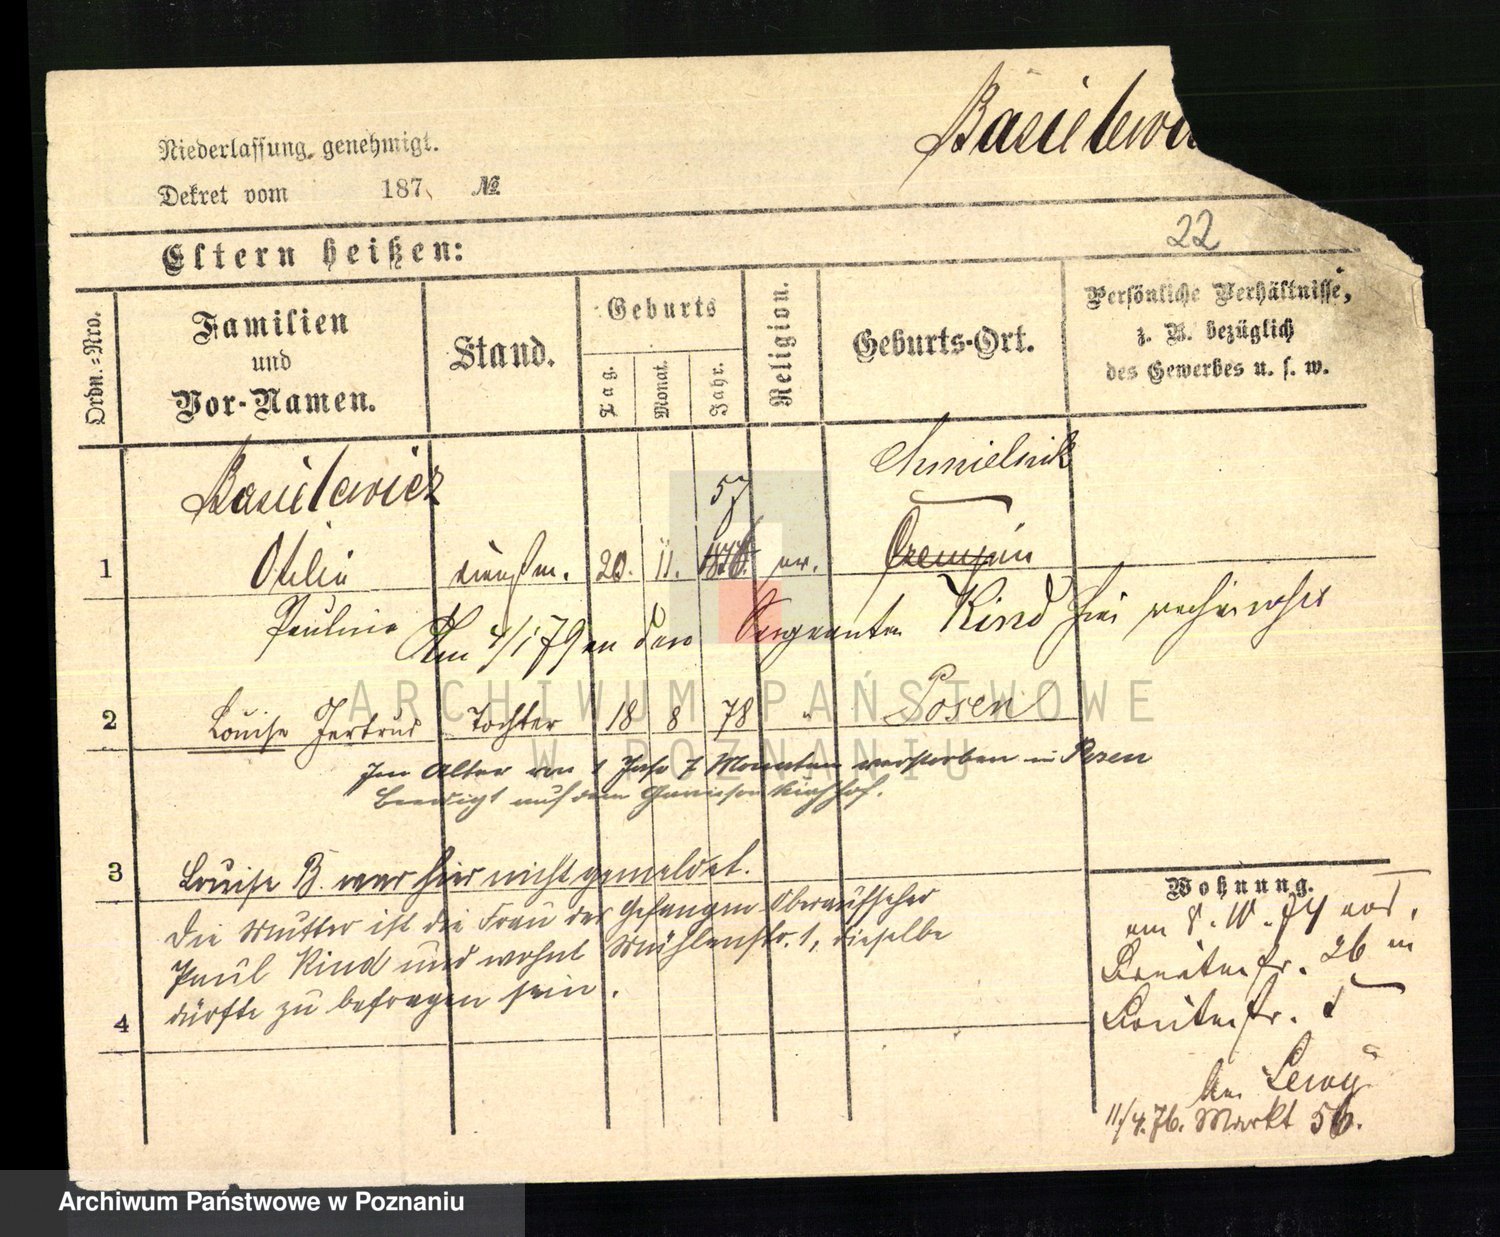 Basilewi
Niederlassung genehmigt.
Dekret vom 187 №
22
Eltern heißen:
Ordn.-Nro.
Familien
und
Vor-Namen.
Stand.
Geburts
Tag.
Monat.
Jahr.
Religion.
Geburts-Ort.
Persönliche Verhältnisse,
z. B. bezüglich
des Gewerbes u. s. w.
Basilewicz
57
1 Otilie 20. 11. ev.
Pauline
Am 4/1 79 an den Sergeanten Kind hier
2 Louise Gertrud Tochter 18 8 78 " Posen
Im Alter von 1 Jahr 7 Monaten verstorben in Posen
beerdigt auf dem Garnisonkirchhof.
3 Louise B. war hier nicht gemeldet.
Die Mutter ist die Frau des Gefangen Oberaufseher
Paul Kind und wohnt Mühlenstr. 1, dieselbe
dürfte zu befragen sein.
4
Wohnung.
am 8. 10. 74 von
26 in
bei Levy
11/4. 76. Markt 56.
ARCHIWUM PAŃSTWOWE
W POZNANIU
Archiwum Państwowe w Poznaniu